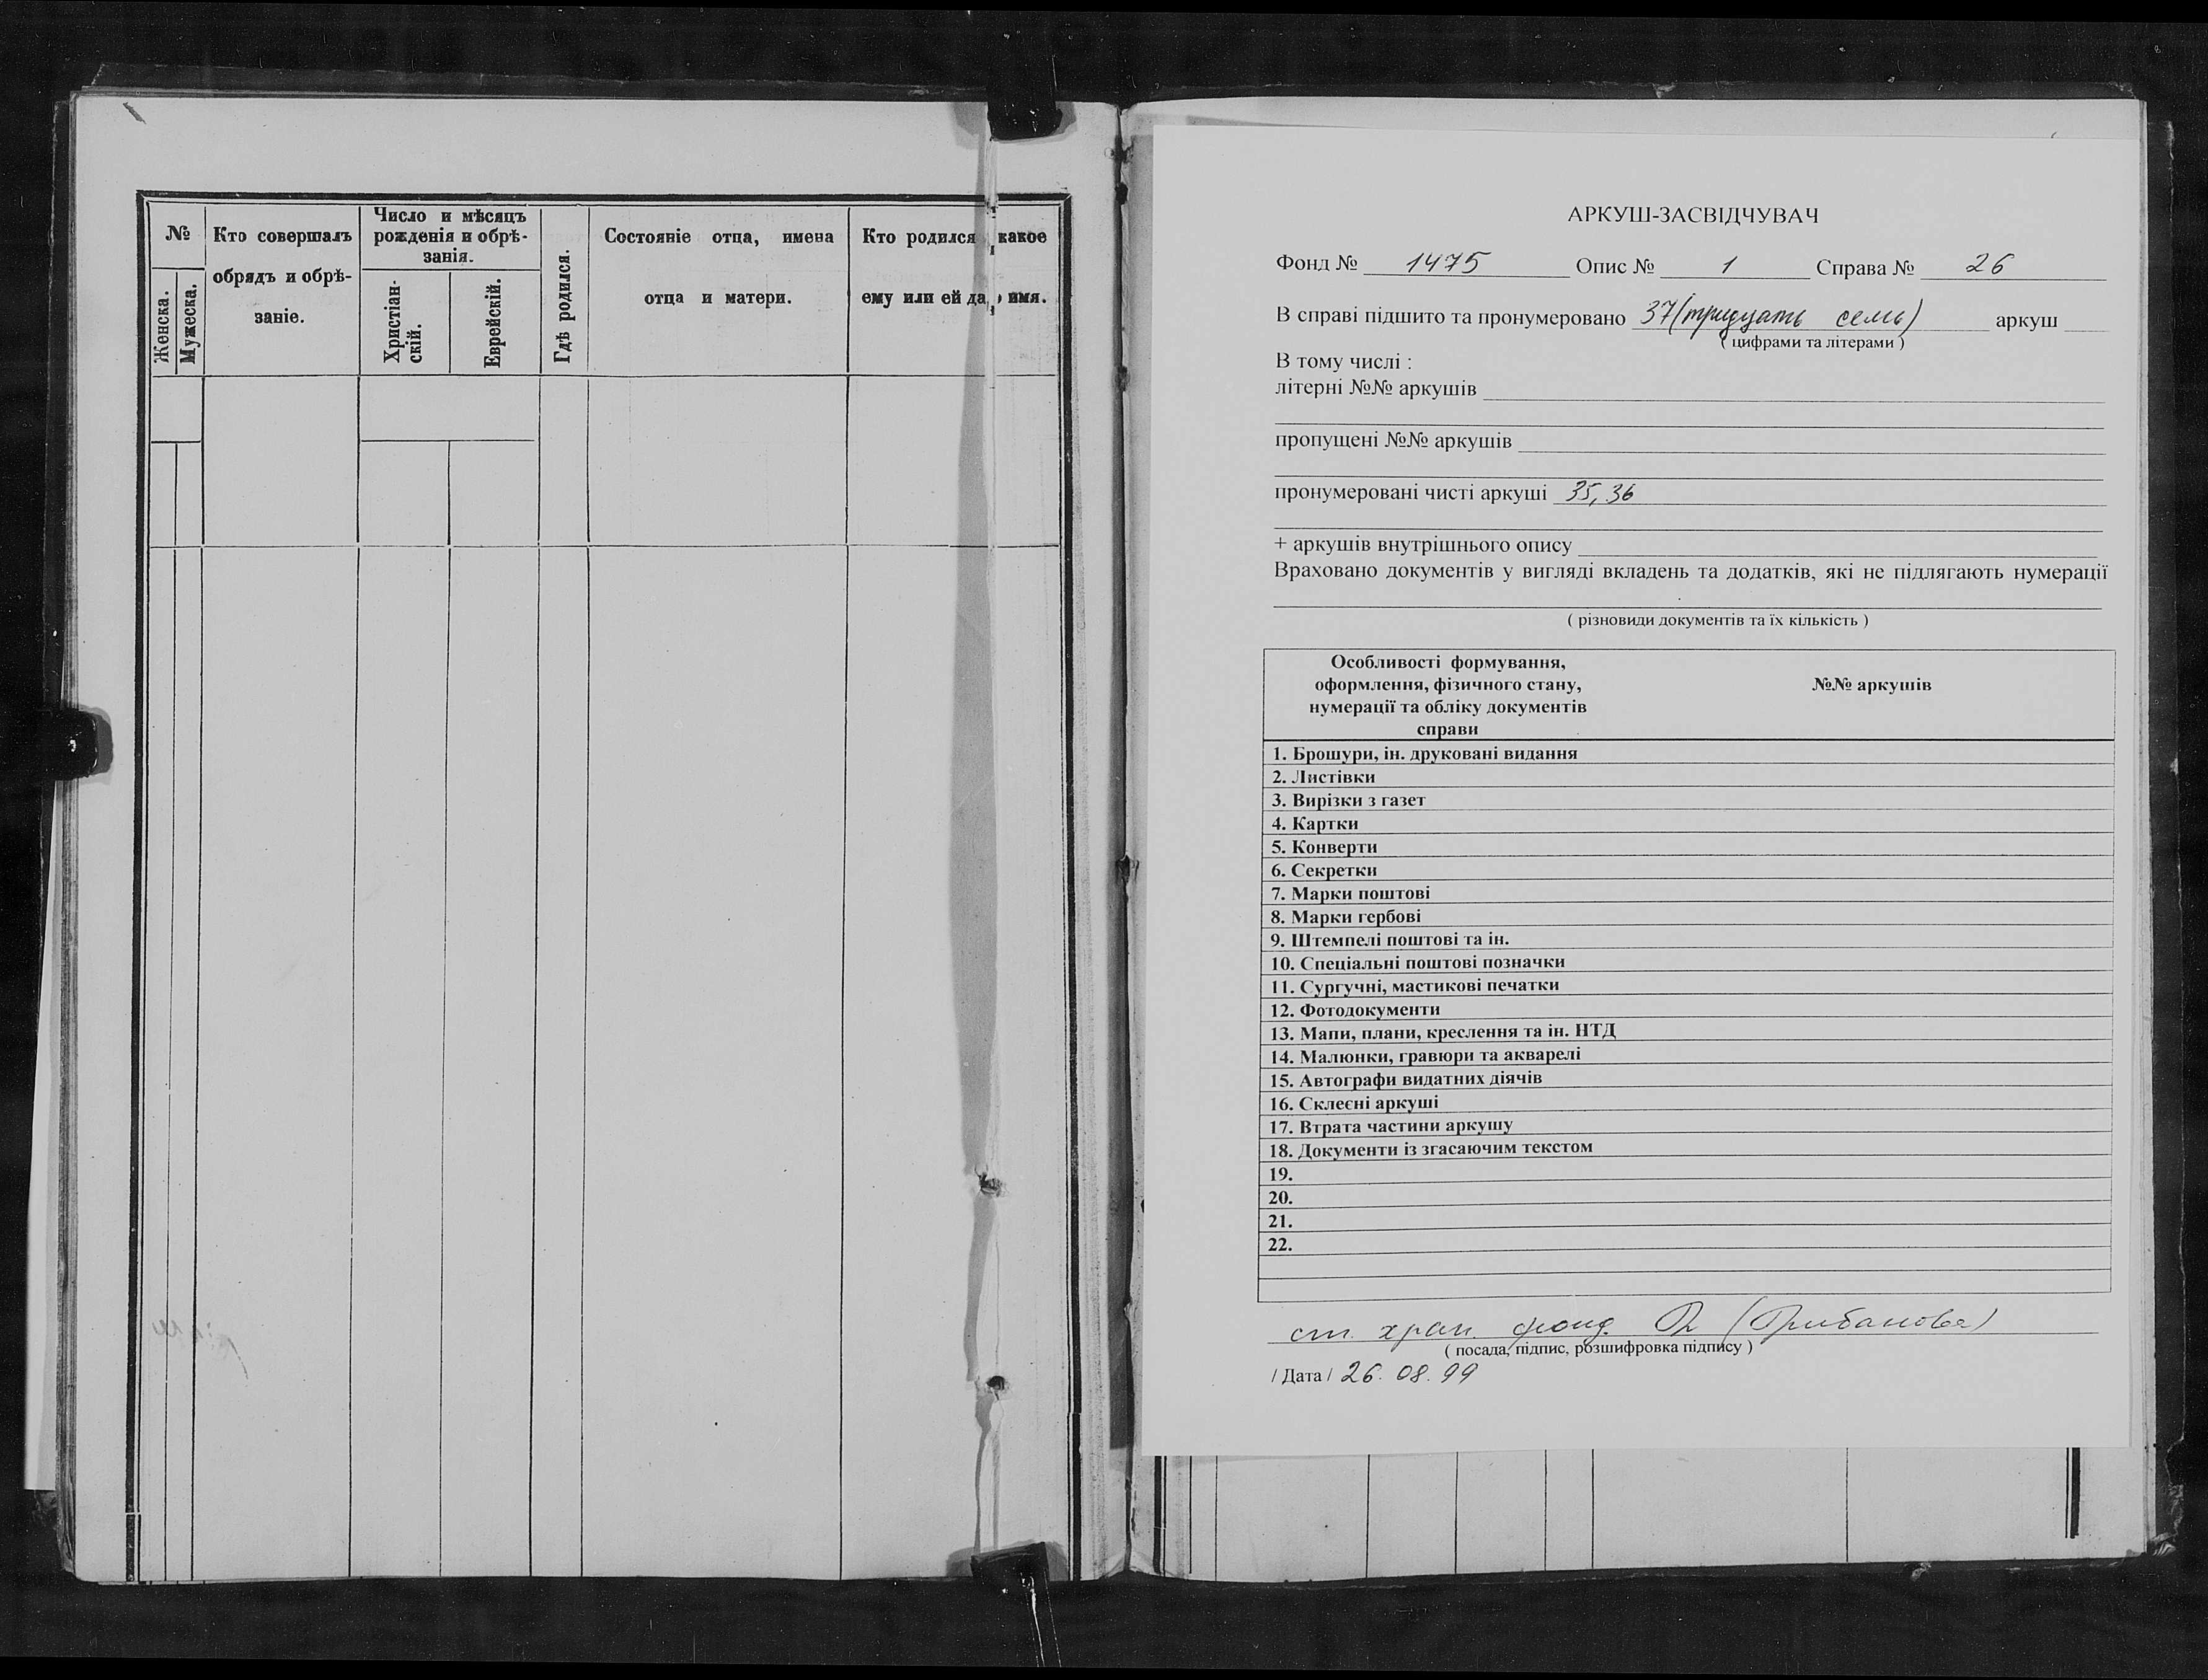 №
Женска.
Мужеска.
Кто совершалъ
обрядъ и обрѣ-
заніе.
Число и мѣсяцъ
рожденія и обрѣ-
занія.
Христіан-
скій.
Еврейскій.
Гдѣ родился.
Состояніе отца, имена
отца и матери.
Кто родился какое
ему или ей да имя.
АРКУШ-ЗАСВІДЧУВАЧ
Фонд № 1475 Опис № 1 Справа № 26
В справі підшито та пронумеровано 37 (тридцать семь) аркуш
( цифрами та літерами )
В тому числі :
літерні №№ аркушів
пропущені №№ аркушів
пронумеровані чисті аркуші 35, 36
+ аркушів внутрішнього опису
Враховано документів у вигляді вкладень та додатків, які не підлягають нумерації
( різновиди документів та їх кількість )
Особливості формування,
оформлення, фізичного стану,
нумерації та обліку документів
справи
№№ аркушів
1. Брошури, ін. друковані видання
2. Листівки
3. Вирізки з газет
4. Картки
5. Конверти
6. Секретки
7. Марки поштові
8. Марки гербові
9. Штемпелі поштові та ін.
10. Спеціальні поштові позначки
11. Сургучні, мастикові печатки
12. Фотодокументи
13. Мапи, плани, креслення та ін. НТД
14. Малюнки, гравюри та акварелі
15. Автографи видатних діячів
16. Склеєні аркуші
17. Втрата частини аркушу
18. Документи із згасаючим текстом
19.
20.
21.
22.
ст. хран. фонд. (Грибанова)
( посада, підпис, розшифровка підпису )
/ Дата / 26. 08. 99